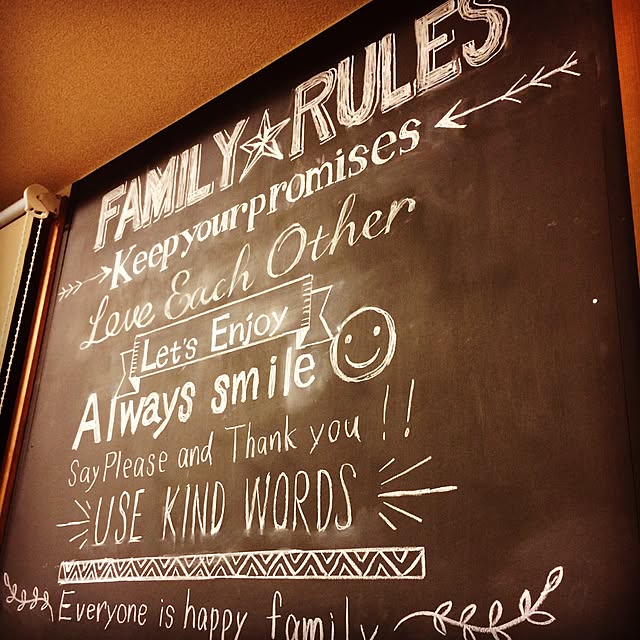 FAMILY☆RULES
Keep your promises
Love Each Other
Let's Enjoy
Always smile
Say Please and Thank you !!
USE KIND WORDS
Everyone is happy family